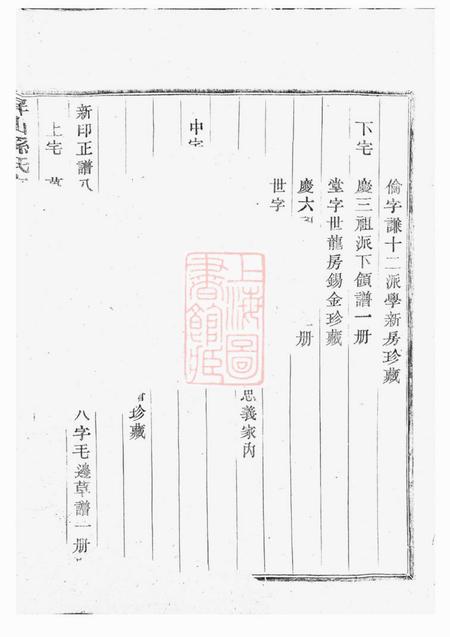 倫字謙十二派學新房珍藏
下宅 慶三祖派下領譜一册
堂字世龍房錫金珍藏
慶六 册
世字
思義家內
中宅
珍藏
新印正譜八 八字毛邊草譜一册
上宅
孫氏
上海圖書館藏